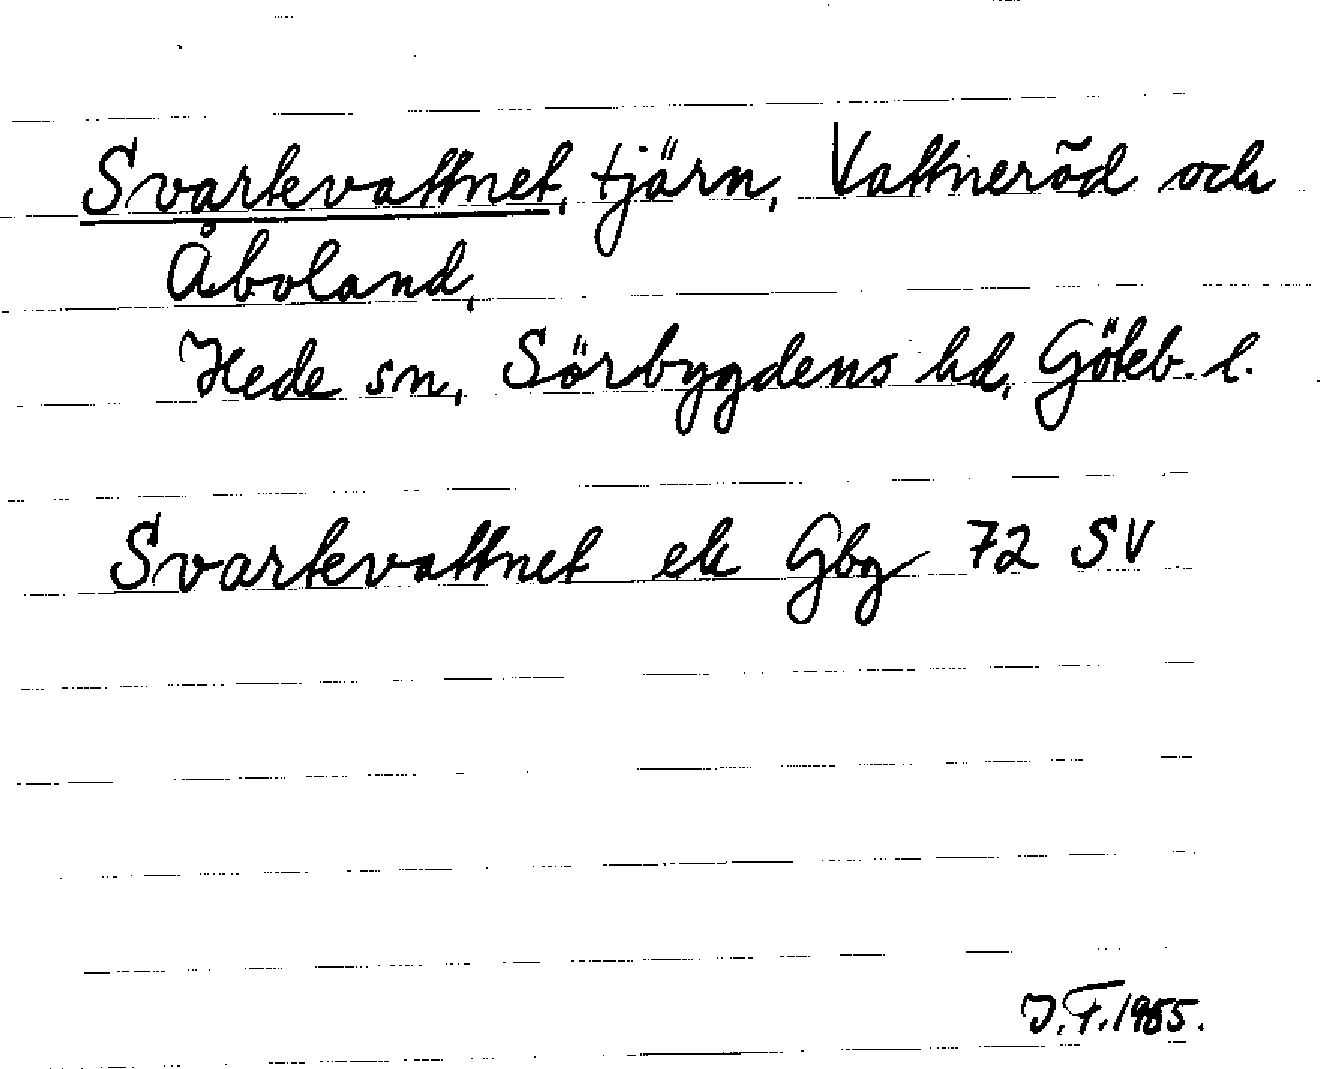 Svartevattnet, tjärn, Vattneröd och
Åboland,
Hede sn, Sörbygdens hd, Göteb. l.
Svartevattnet ek Gbg 72 SV
J.F. 1985.